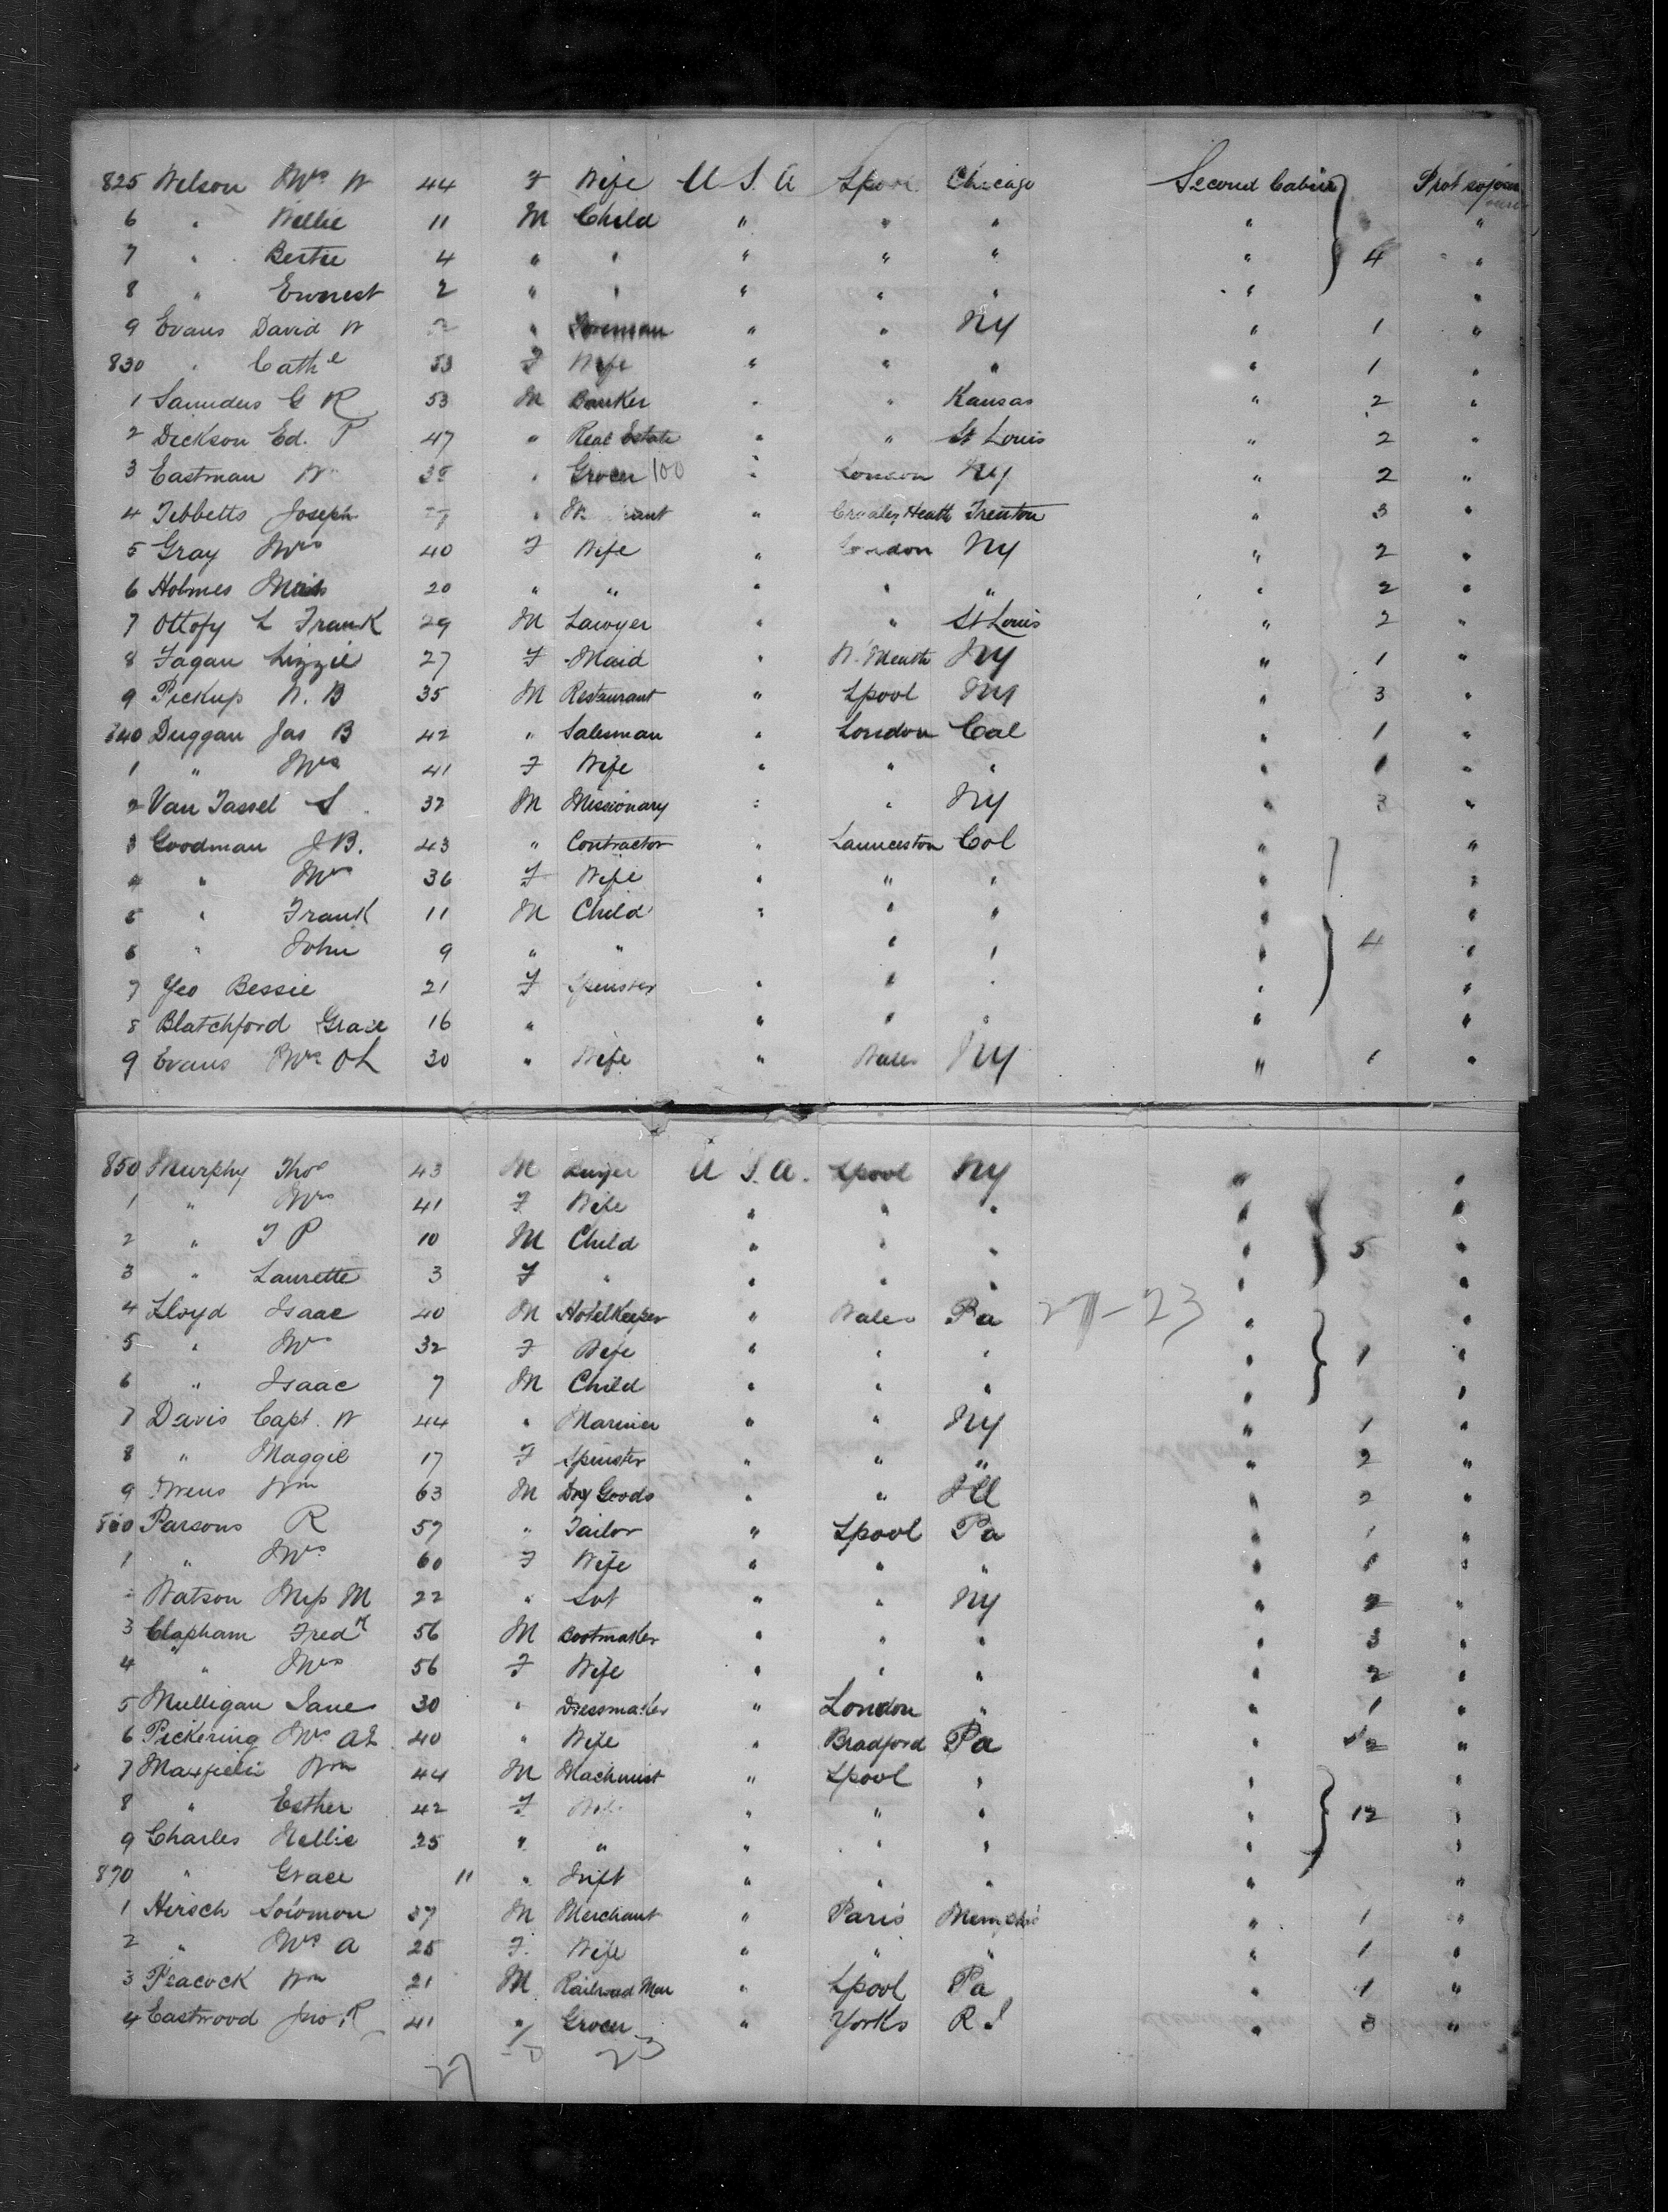 825 Wilson Mrs W 44 F Wife U S. A Lpool Chicago Second Cabin Prot sojourn
6 " Willie 11 M Child " " " " "
7 " Bertie 4 " " " " " " 4 "
8 " Ernest 2 " " " " " " "
9 Evans David W " " " NY " 1 "
830 " Cath e 53 F Wife " " " " 1 "
1 Saunders G R 53 M Banker " " Kansas " 2 "
2 Dickson Ed. P 47 " Real Estate " " St Louis " 2 "
3 Eastman W " Grocer 100 " London NY " 2 "
4 Tibbetts Joseph " " Heath Trenton " 3 "
5 Gray Mrs 40 F Wife " London NY " 2 "
6 Holmes Miss 20 " " " " " " 2 "
7 Ottofy L Frank 29 M Lawyer " " St Louis " 2 "
8 Fagan Lizzie 27 F Maid " W. Meath NY " 1 "
9 Pickup W. B 35 M Restaurant " Lpool NY " 3 "
840 Duggan Jas B 42 " Salesman " London Cal " 1 "
1 " Mrs 41 F Wife " " " " 1 "
2 Van Tassel S 32 M Missionary " " NY " 3 "
3 Goodman J B. 43 " Contractor " Launceston Col " "
4 " Mrs 36 F Wife " " " " "
5 " Frank 11 M Child " " " " "
6 " John 9 " " " " " " 4 "
7 Yeo Bessie 21 F Spinster " " " " "
8 Blatchford Grace 16 " " " " " "
9 Evans Mrs O L 30 " Wife " Wales NY " 1 "
850 Murphy Thos 43 M Buyer U S. A. Lpool NY " "
1 " Mrs 41 F Wife " " " " "
2 " T P 10 M Child " " " " 5 "
3 " Laurette 3 F " " " " " "
4 Lloyd Isaac 40 M Hotelkeeper " Wales Pa 27-23 " "
5 " Mrs 32 F Wife " " " " 1 "
6 " Isaac 7 M Child " " " " "
7 Davis Capt. W 44 " Mariner " " NY " 1 "
8 " Maggie 17 F Spinster " " " " 2 "
9 Wm 63 M Dry Goods " " Ill " 2 "
860 Parsons R 57 " Tailor " Lpool Pa " 1 "
1 " Mrs 60 F Wife " " " " 1 "
Watson Miss M 22 " " " NY " 2 "
3 Clapham Fredk 56 M Bootmaker " " " " 3 "
4 " Mrs 56 F Wife " " " " 2 "
5 Mulligan Jane 30 " Dressmaker " London " " 1 "
6 Pickering Mrs A L 40 " Wife " Bradford Pa " 2 "
7 Maxfield Wm 44 M Machinist " Lpool " " "
8 " Esther 42 F " " " " 12 "
9 Charles Nellie 25 " " " " " " "
870 " Grace 11 " " " " " "
1 Hirsch Solomon 37 M Merchant " Paris Memphis " 1 "
2 " Mrs A 25 F. Wife " " " " 1 "
3 Peacock Wm 21 M Railroad Man " Lpool Pa " 1 "
4 Eastwood Jno. R 41 " Grocer " Yorks R I " 3 "
27 23